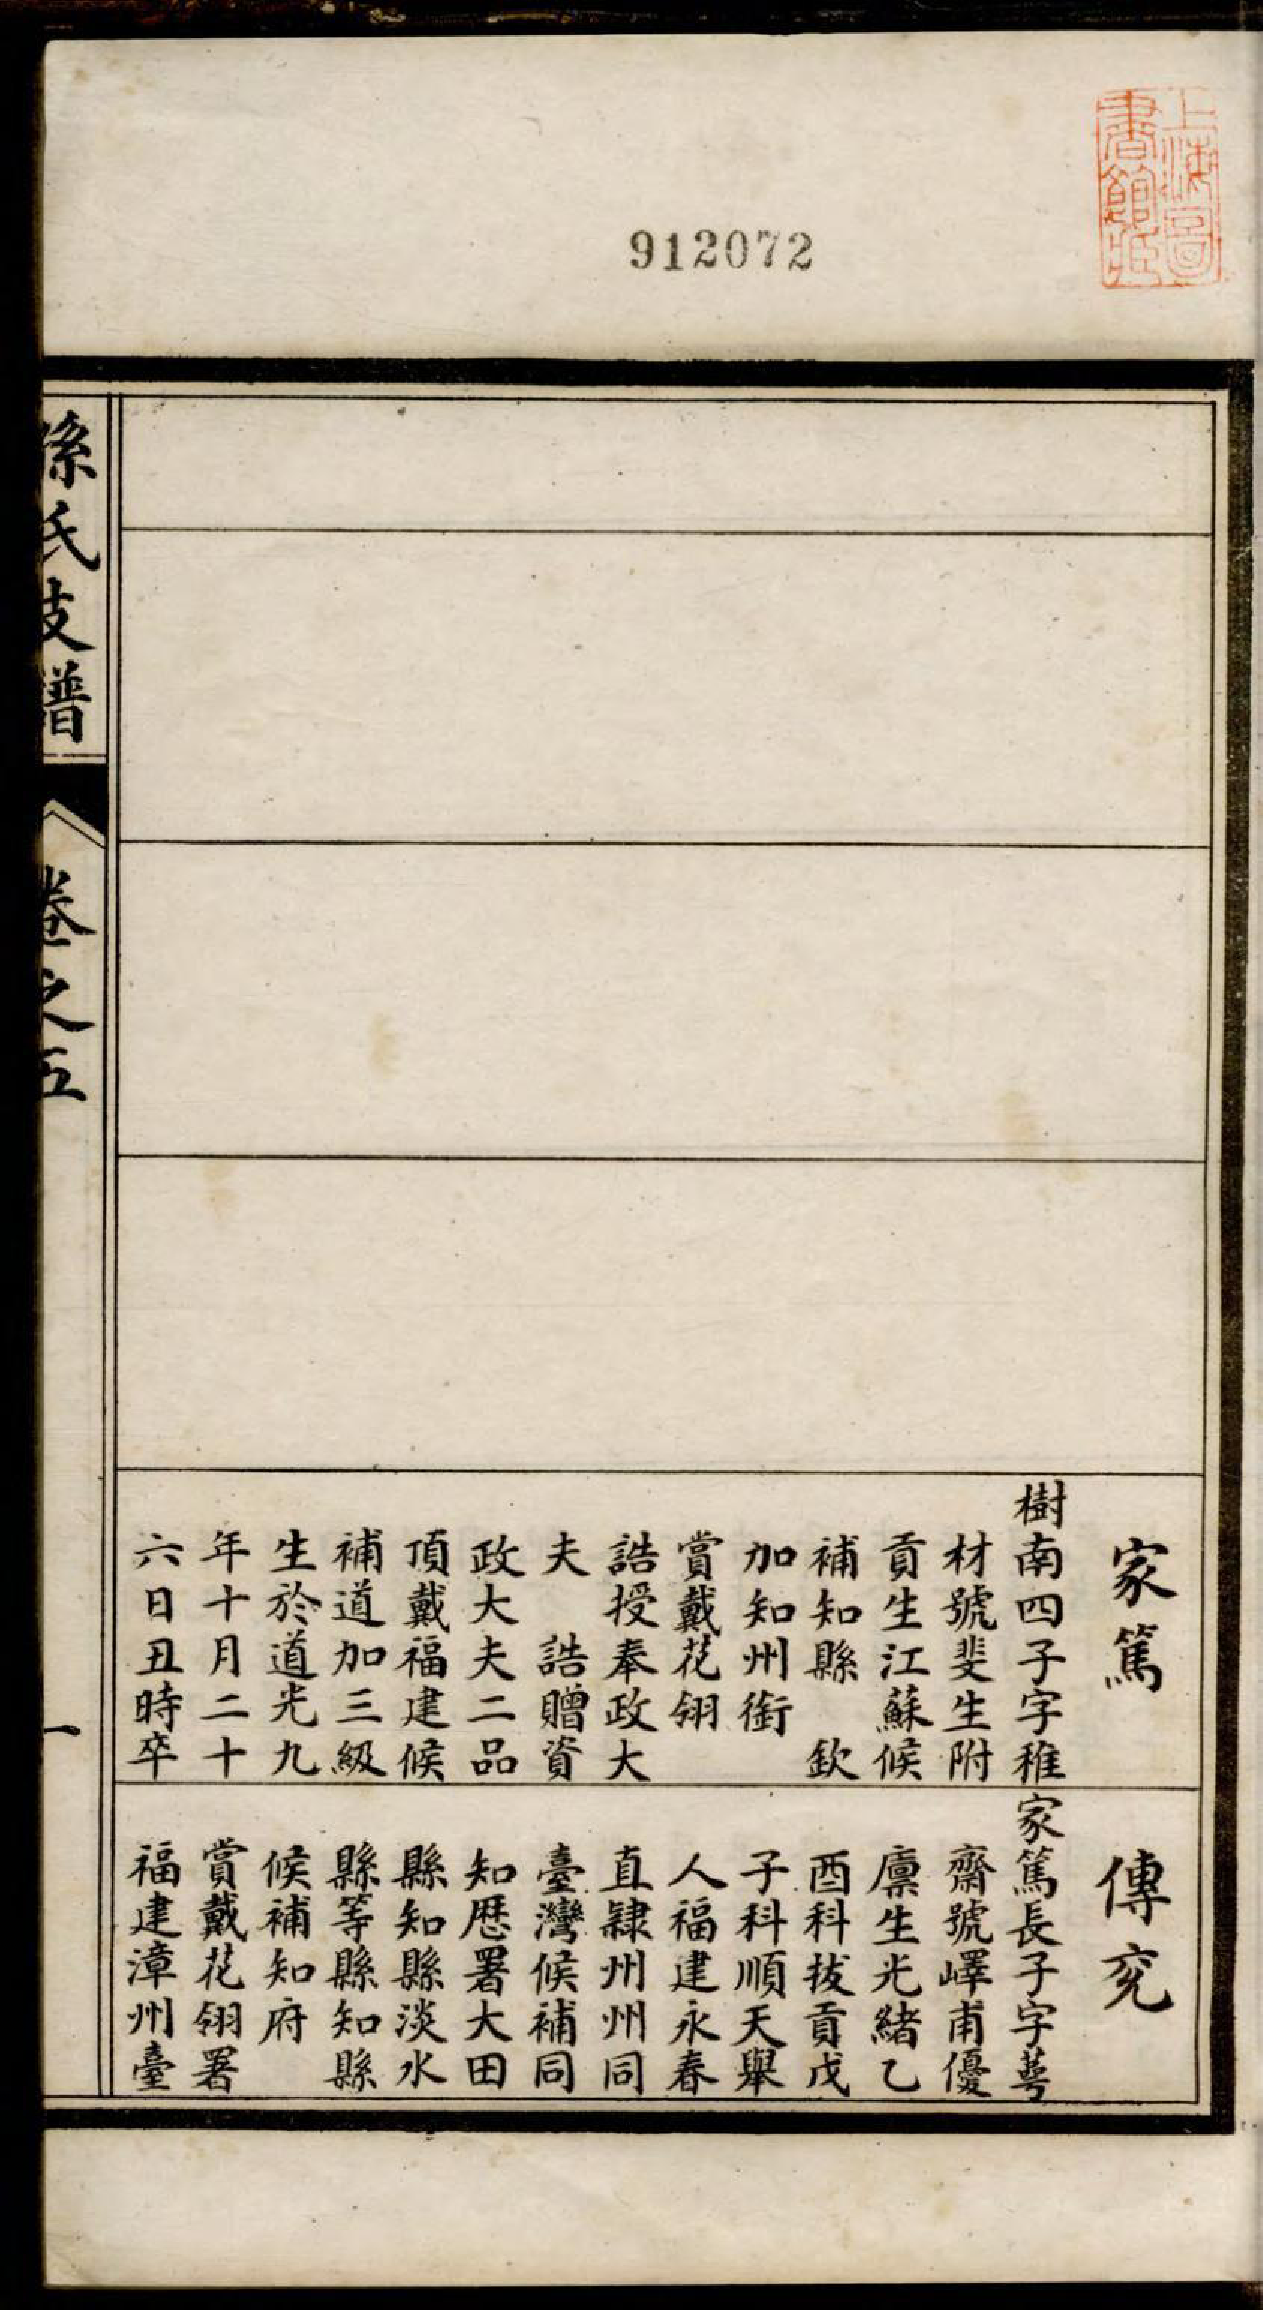 上海圖
書館藏
912072
家篤
樹南四子字稚
材號斐生附
貢生江蘇候
補知縣　欽
加知州銜
賞戴花翎
誥授奉政大
夫　誥贈資
政大夫二品
頂戴福建候
補道加三級
生於道光九
年十月二十
六日丑時卒
傳兗
家篤長子字蕚
齋號嶧甫優
廩生光緒乙
酉科拔貢戊
子科順天舉
人福建永春
直隸州州同
臺灣候補同
知歷署大田
縣知縣淡水
縣等縣知縣
候補知府
賞戴花翎署
福建漳州臺
孫氏支譜
卷之五
一